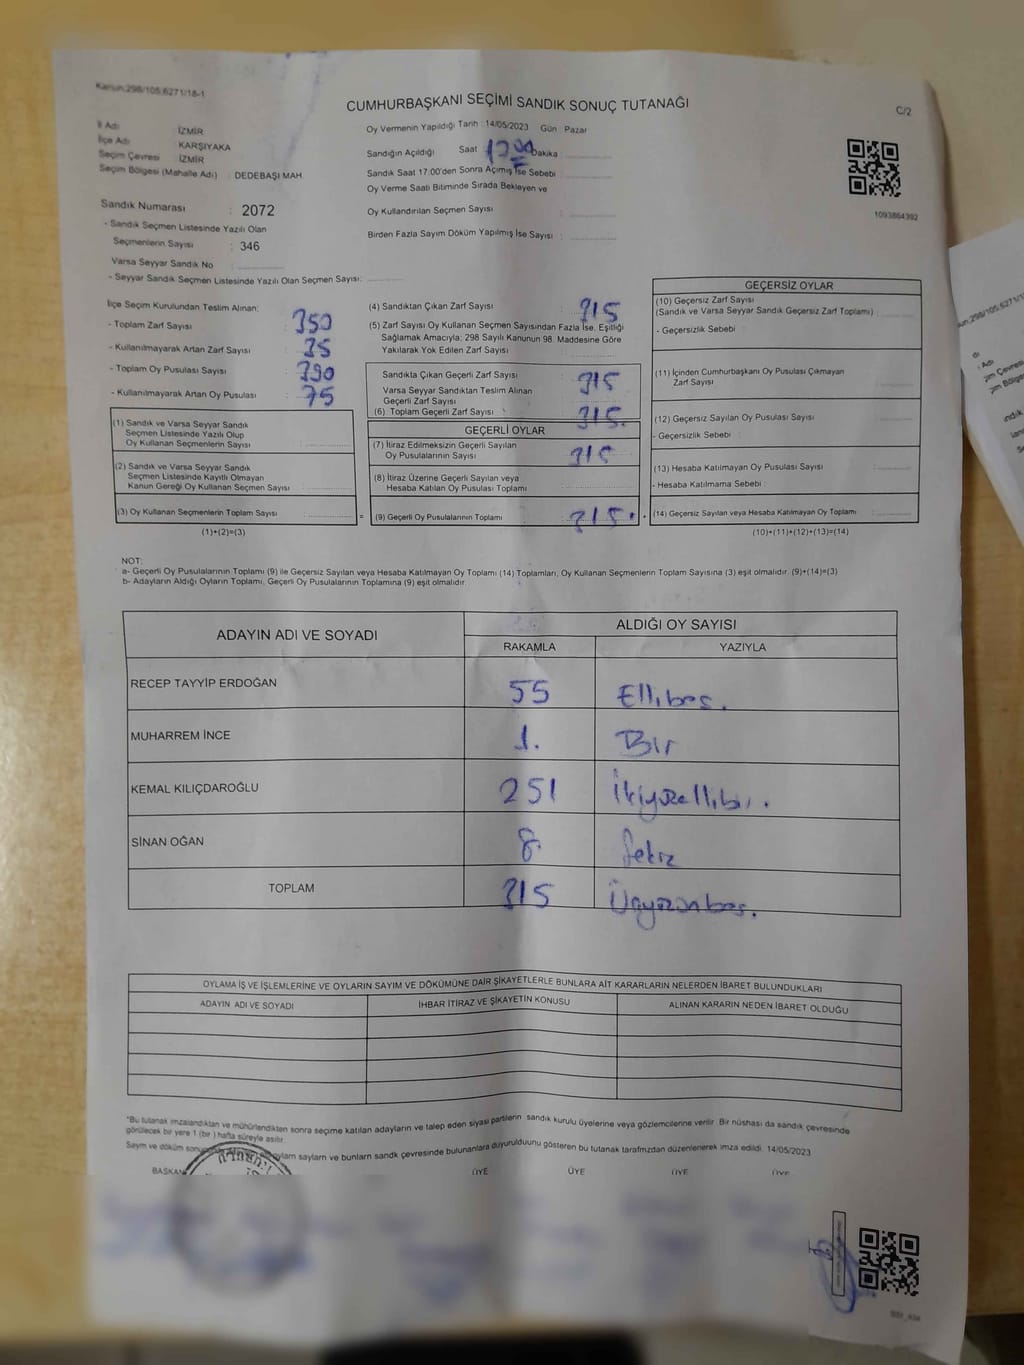 Kanun:298/105;6271/18-1
CUMHURBAŞKANI SEÇİMİ SANDIK SONUÇ TUTANAĞI
C/2
İl Adı : İZMİR
İlçe Adı : KARŞIYAKA
Seçim Çevresi : İZMİR
Seçim Bölgesi (Mahalle Adı) : DEDEBAŞI MAH.
Sandık Numarası : 2072
- Sandık Seçmen Listesinde Yazılı Olan
Seçmenlerin Sayısı : 346
Varsa Seyyar Sandık No :
- Seyyar Sandık Seçmen Listesinde Yazılı Olan Seçmen Sayısı:
Oy Vermenin Yapıldığı Tarih :14/05/2023 Gün : Pazar
Sandığın Açıldığı Saat : 17 00 Dakika :
Sandık Saat 17:00'den Sonra Açılmış İse Sebebi :
Oy Verme Saati Bitiminde Sırada Bekleyen ve
Oy Kullandırılan Seçmen Sayısı :
Birden Fazla Sayım Döküm Yapılmış İse Sayısı :
1093864392
İlçe Seçim Kurulundan Teslim Alınan:
- Toplam Zarf Sayısı : 350
- Kullanılmayarak Artan Zarf Sayısı : 35
- Toplam Oy Pusulası Sayısı : 390
- Kullanılmayarak Artan Oy Pusulası : 75
(1) Sandık ve Varsa Seyyar Sandık
Seçmen Listesinde Yazılı Olup
Oy Kullanan Seçmenlerin Sayısı :
(2) Sandık ve Varsa Seyyar Sandık
Seçmen Listesinde Kayıtlı Olmayan
Kanun Gereği Oy Kullanan Seçmen Sayısı :
(3) Oy Kullanan Seçmenlerin Toplam Sayısı :
(1)+(2)=(3)
(4) Sandıktan Çıkan Zarf Sayısı : 315
(5) Zarf Sayısı Oy Kullanan Seçmen Sayısından Fazla İse, Eşitliği
Sağlamak Amacıyla; 298 Sayılı Kanunun 98. Maddesine Göre
Yakılarak Yok Edilen Zarf Sayısı :
Sandıkta Çıkan Geçerli Zarf Sayısı : 315
Varsa Seyyar Sandıktan Teslim Alınan
Geçerli Zarf Sayısı :
(6) Toplam Geçerli Zarf Sayısı : 315.
GEÇERLİ OYLAR
(7) İtiraz Edilmeksizin Geçerli Sayılan
Oy Pusulalarının Sayısı : 315
(8) İtiraz Üzerine Geçerli Sayılan veya
Hesaba Katılan Oy Pusulası Toplamı :
= (9) Geçerli Oy Pusulalarının Toplamı : 315. +
GEÇERSİZ OYLAR
(10) Geçersiz Zarf Sayısı
(Sandık ve Varsa Seyyar Sandık Geçersiz Zarf Toplamı) :
- Geçersizlik Sebebi :
(11) İçinden Cumhurbaşkanı Oy Pusulası Çıkmayan
Zarf Sayısı :
(12) Geçersiz Sayılan Oy Pusulası Sayısı :
- Geçersizlik Sebebi :
(13) Hesaba Katılmayan Oy Pusulası Sayısı :
- Hesaba Katılmama Sebebi :
(14) Geçersiz Sayılan veya Hesaba Katılmayan Oy Toplamı :
(10)+(11)+(12)+(13)=(14)
NOT:
a- Geçerli Oy Pusulalarının Toplamı (9) ile Geçersiz Sayılan veya Hesaba Katılmayan Oy Toplamı (14) Toplamları, Oy Kullanan Seçmenlerin Toplam Sayısına (3) eşit olmalıdır. (9)+(14)=(3)
b- Adayların Aldığı Oyların Toplamı, Geçerli Oy Pusulalarının Toplamına (9) eşit olmalıdır.
ADAYIN ADI VE SOYADI
ALDIĞI OY SAYISI
RAKAMLA YAZIYLA
RECEP TAYYİP ERDOĞAN 55 Ellibeş.
MUHARREM İNCE 1. Bir
KEMAL KILIÇDAROĞLU 251 İkiyüzellibir.
SİNAN OĞAN 8. Sekiz
TOPLAM 315 Üçyüzonbeş.
OYLAMA İŞ VE İŞLEMLERİNE VE OYLARIN SAYIM VE DÖKÜMÜNE DAİR ŞİKAYETLERLE BUNLARA AİT KARARLARIN NELERDEN İBARET BULUNDUKLARI
ADAYIN ADI VE SOYADI İHBAR İTİRAZ VE ŞİKAYETİN KONUSU ALINAN KARARIN NEDEN İBARET OLDUĞU
*Bu tutanak imzalandıktan ve mühürlendikten sonra seçime katılan adayların ve talep eden siyasi partilerin sandık kurulu üyelerine veya gözlemcilerine verilir. Bir nüshası da sandık çevresinde
görülecek bir yere 1 (bir) hafta süreyle asılır.
Sayım ve döküm bunların sandk çevresinde bulunanlara duyurulduunu gösteren bu tutanak tarafımızdan düzenlenerek imza edildi. 14/05/2023
BAŞKAN ÜYE ÜYE ÜYE ÜYE